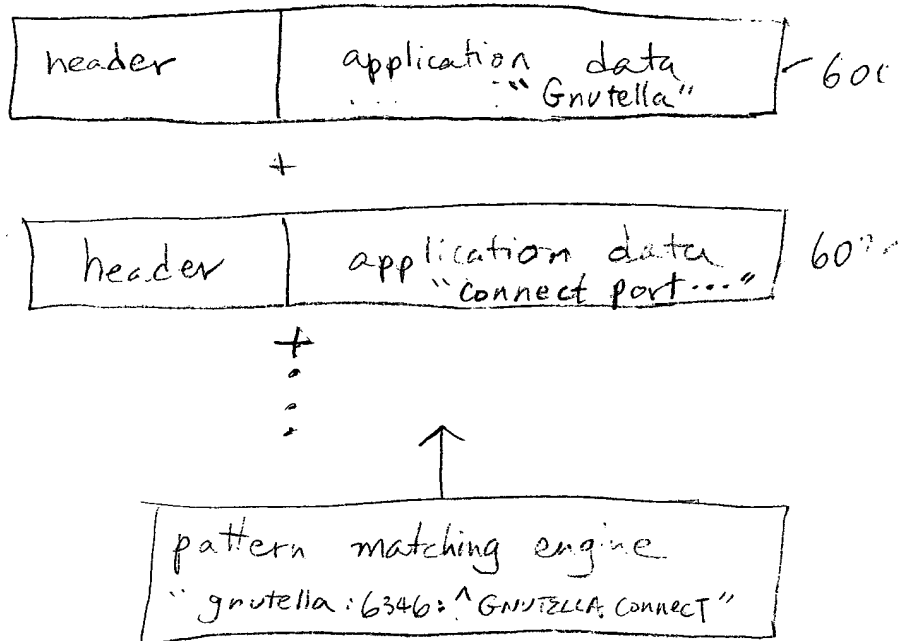 header application data
"Gnutella"
600
+
header application data
"connect port..."
+
pattern matching engine
"gnutella:6346:^GNUTELLA CONNECT"